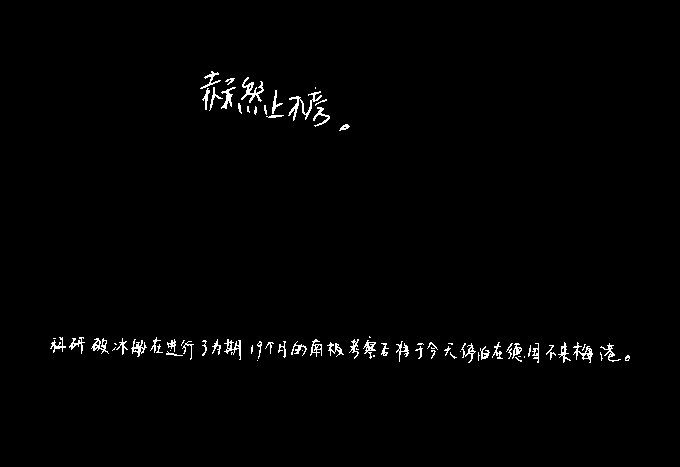 赫然上榜。
科研破冰船在进行了为期19个月的南极考察后将于今天停泊在德国不来梅港。